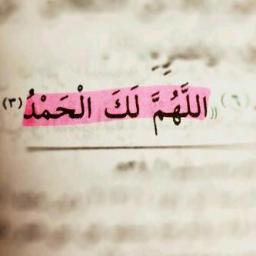 (٦) «اللَّهُمَّ لَكَ الْحَمْدُ (٣)